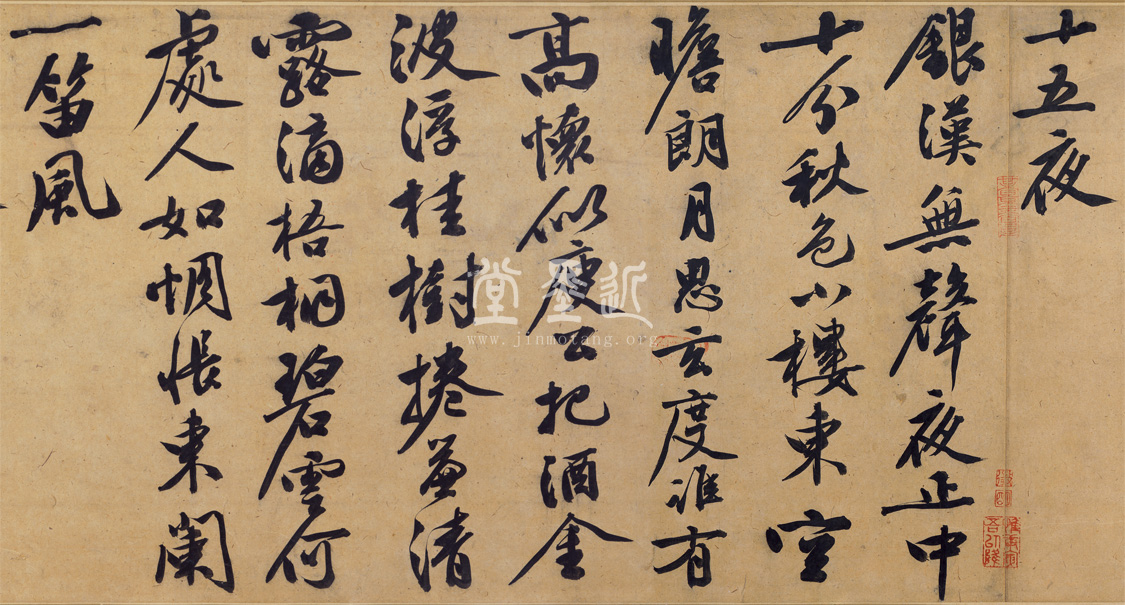 十五夜
銀漢無聲夜正中
十分秋色小樓東空
瞻朗月思玄度誰有
高懷似庾公把酒金
波浮桂樹捲簾清
露滴梧桐碧雲何
處人如惆悵東闌
一笛風
近墨堂
www.jinmotang.org